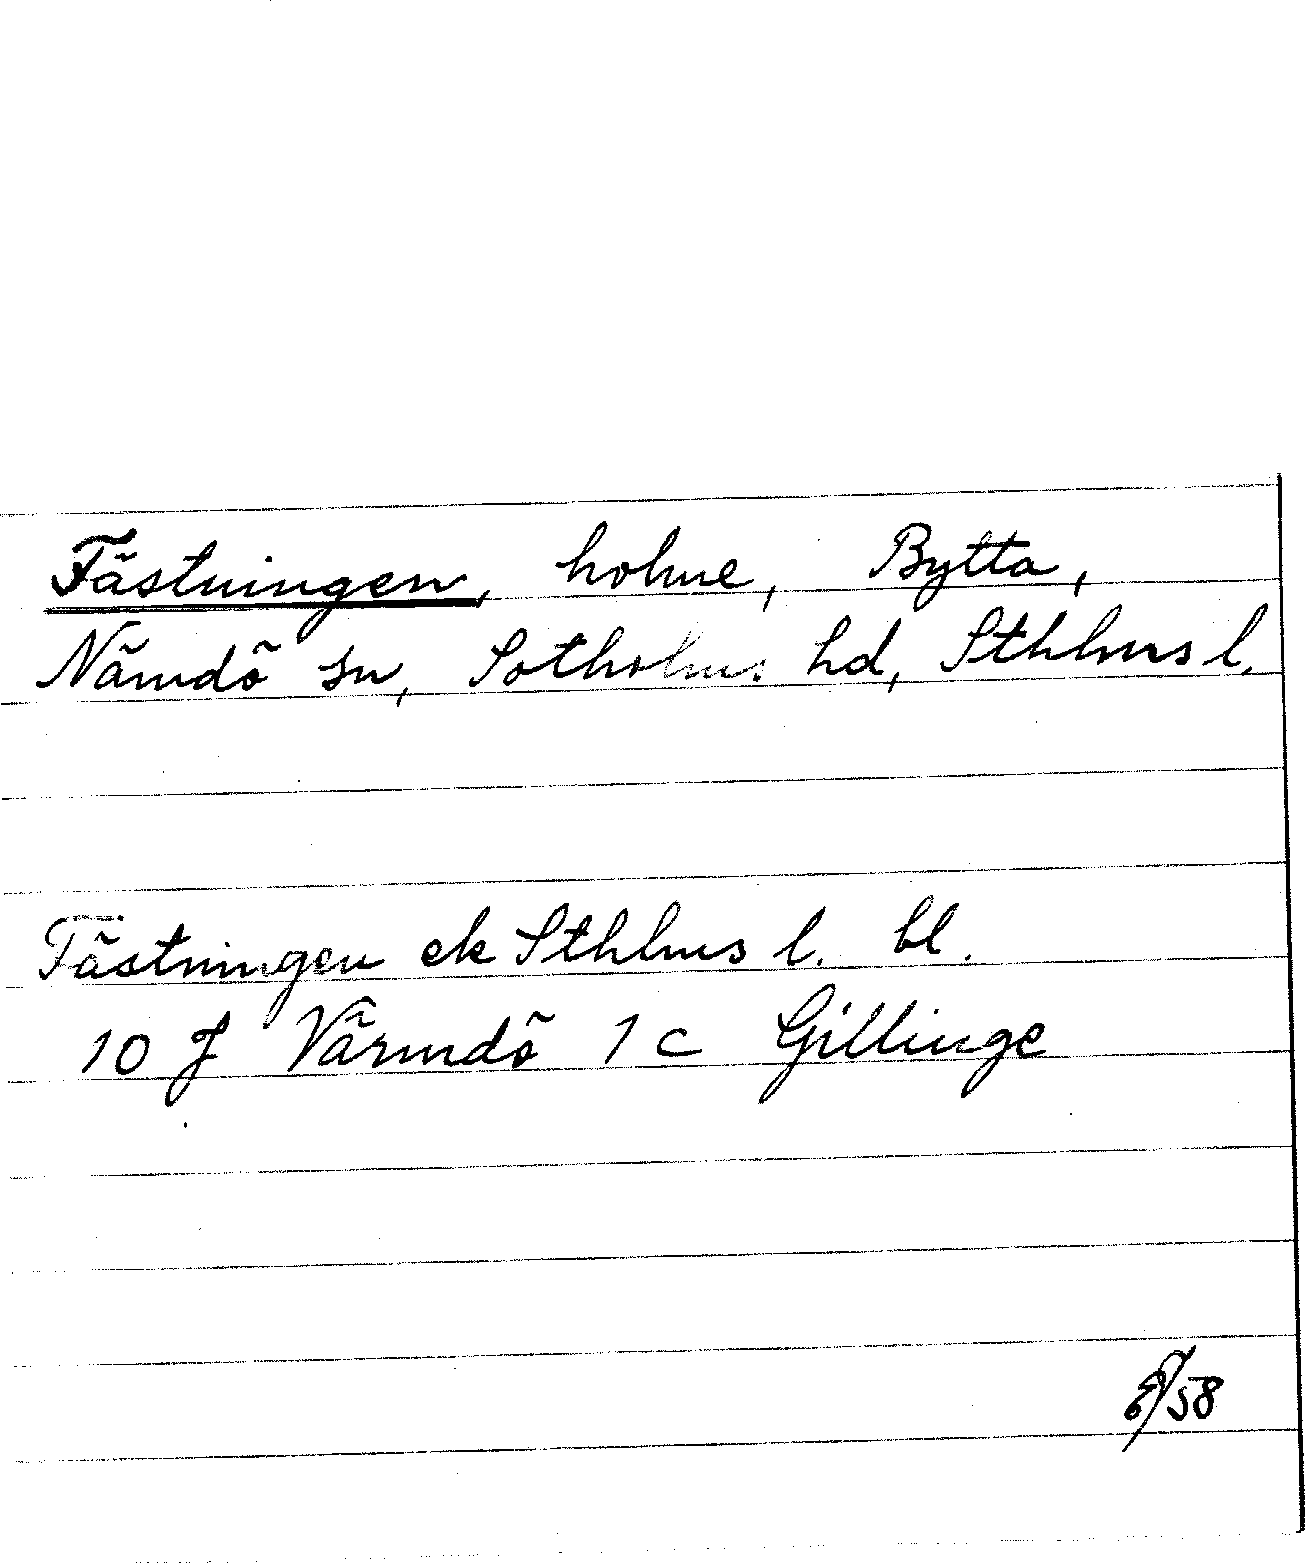 Fästningen, holme, Bytta,
Nämdö sn, Sotholms hd, Sthlms l.
Fästningen ek Sthlms l. bl.
10 J Värmdö 1 c Gillinge
/58